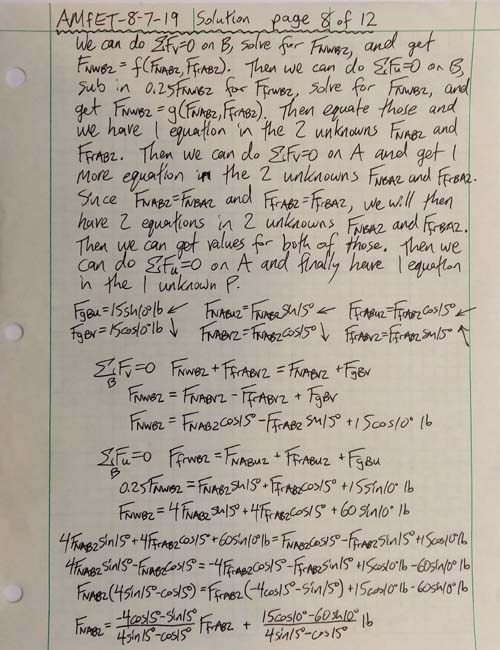 AMfET-8-7-19 Solution page 8 of 12
We can do ΣFv=0 on B, solve for FNWB2, and get
FNWB2 = f(FNAB2, FfrAB2). Then we can do ΣFu=0 on B,
sub in 0.25FNWB2 for FfrWB2, solve for FNWB2, and
get FNWB2 = g(FNAB2, FfrAB2). Then equate those and
we have 1 equation in the 2 unknowns FNAB2 and
FfrAB2. Then we can do ΣFv=0 on A and get 1
more equation in the 2 unknowns FNBA2 and FfrBA2.
Since FNAB2=FNBA2 and FfrAB2=FfrBA2, we will then
have 2 equations in 2 unknowns FNBA2 and FfrBA2.
Then we can get values for both of those. Then we
can do ΣFu=0 on A and finally have 1 equation
in the 1 unknown P.
FgBu=15sin10° lb ↙ FNABu2=FNAB2 sin15° ↙ FfrABu2=FfrAB2 cos15° ↙
FgBv=15cos10° lb ↓ FNABv2=FNAB2 cos15° ↓ FfrABv2=FfrAB2 sin15° ↑
ΣFv=0 FNWB2 + FfrABv2 = FNABv2 + FgBv
B
FNWB2 = FNABv2 - FfrABv2 + FgBv
FNWB2 = FNAB2 cos15° - FfrAB2 sin15° + 15cos10° lb
ΣFu=0 FfrWB2 = FNABu2 + FfrABu2 + FgBu
B
0.25FNWB2 = FNAB2 sin15° + FfrAB2 cos15° + 15sin10° lb
FNWB2 = 4FNAB2 sin15° + 4FfrAB2 cos15° + 60sin10° lb
4FNAB2 sin15° + 4FfrAB2 cos15° + 60sin10° lb = FNAB2 cos15° - FfrAB2 sin15° + 15cos10° lb
4FNAB2 sin15° - FNAB2 cos15° = -4FfrAB2 cos15° - FfrAB2 sin15° + 15cos10° lb - 60sin10° lb
FNAB2(4sin15° - cos15°) = FfrAB2(-4cos15° - sin15°) + 15cos10° lb - 60sin10° lb
FNAB2 = (-4cos15° - sin15°)/(4sin15° - cos15°) FfrAB2 + (15cos10° - 60sin10°)/(4sin15° - cos15°) lb